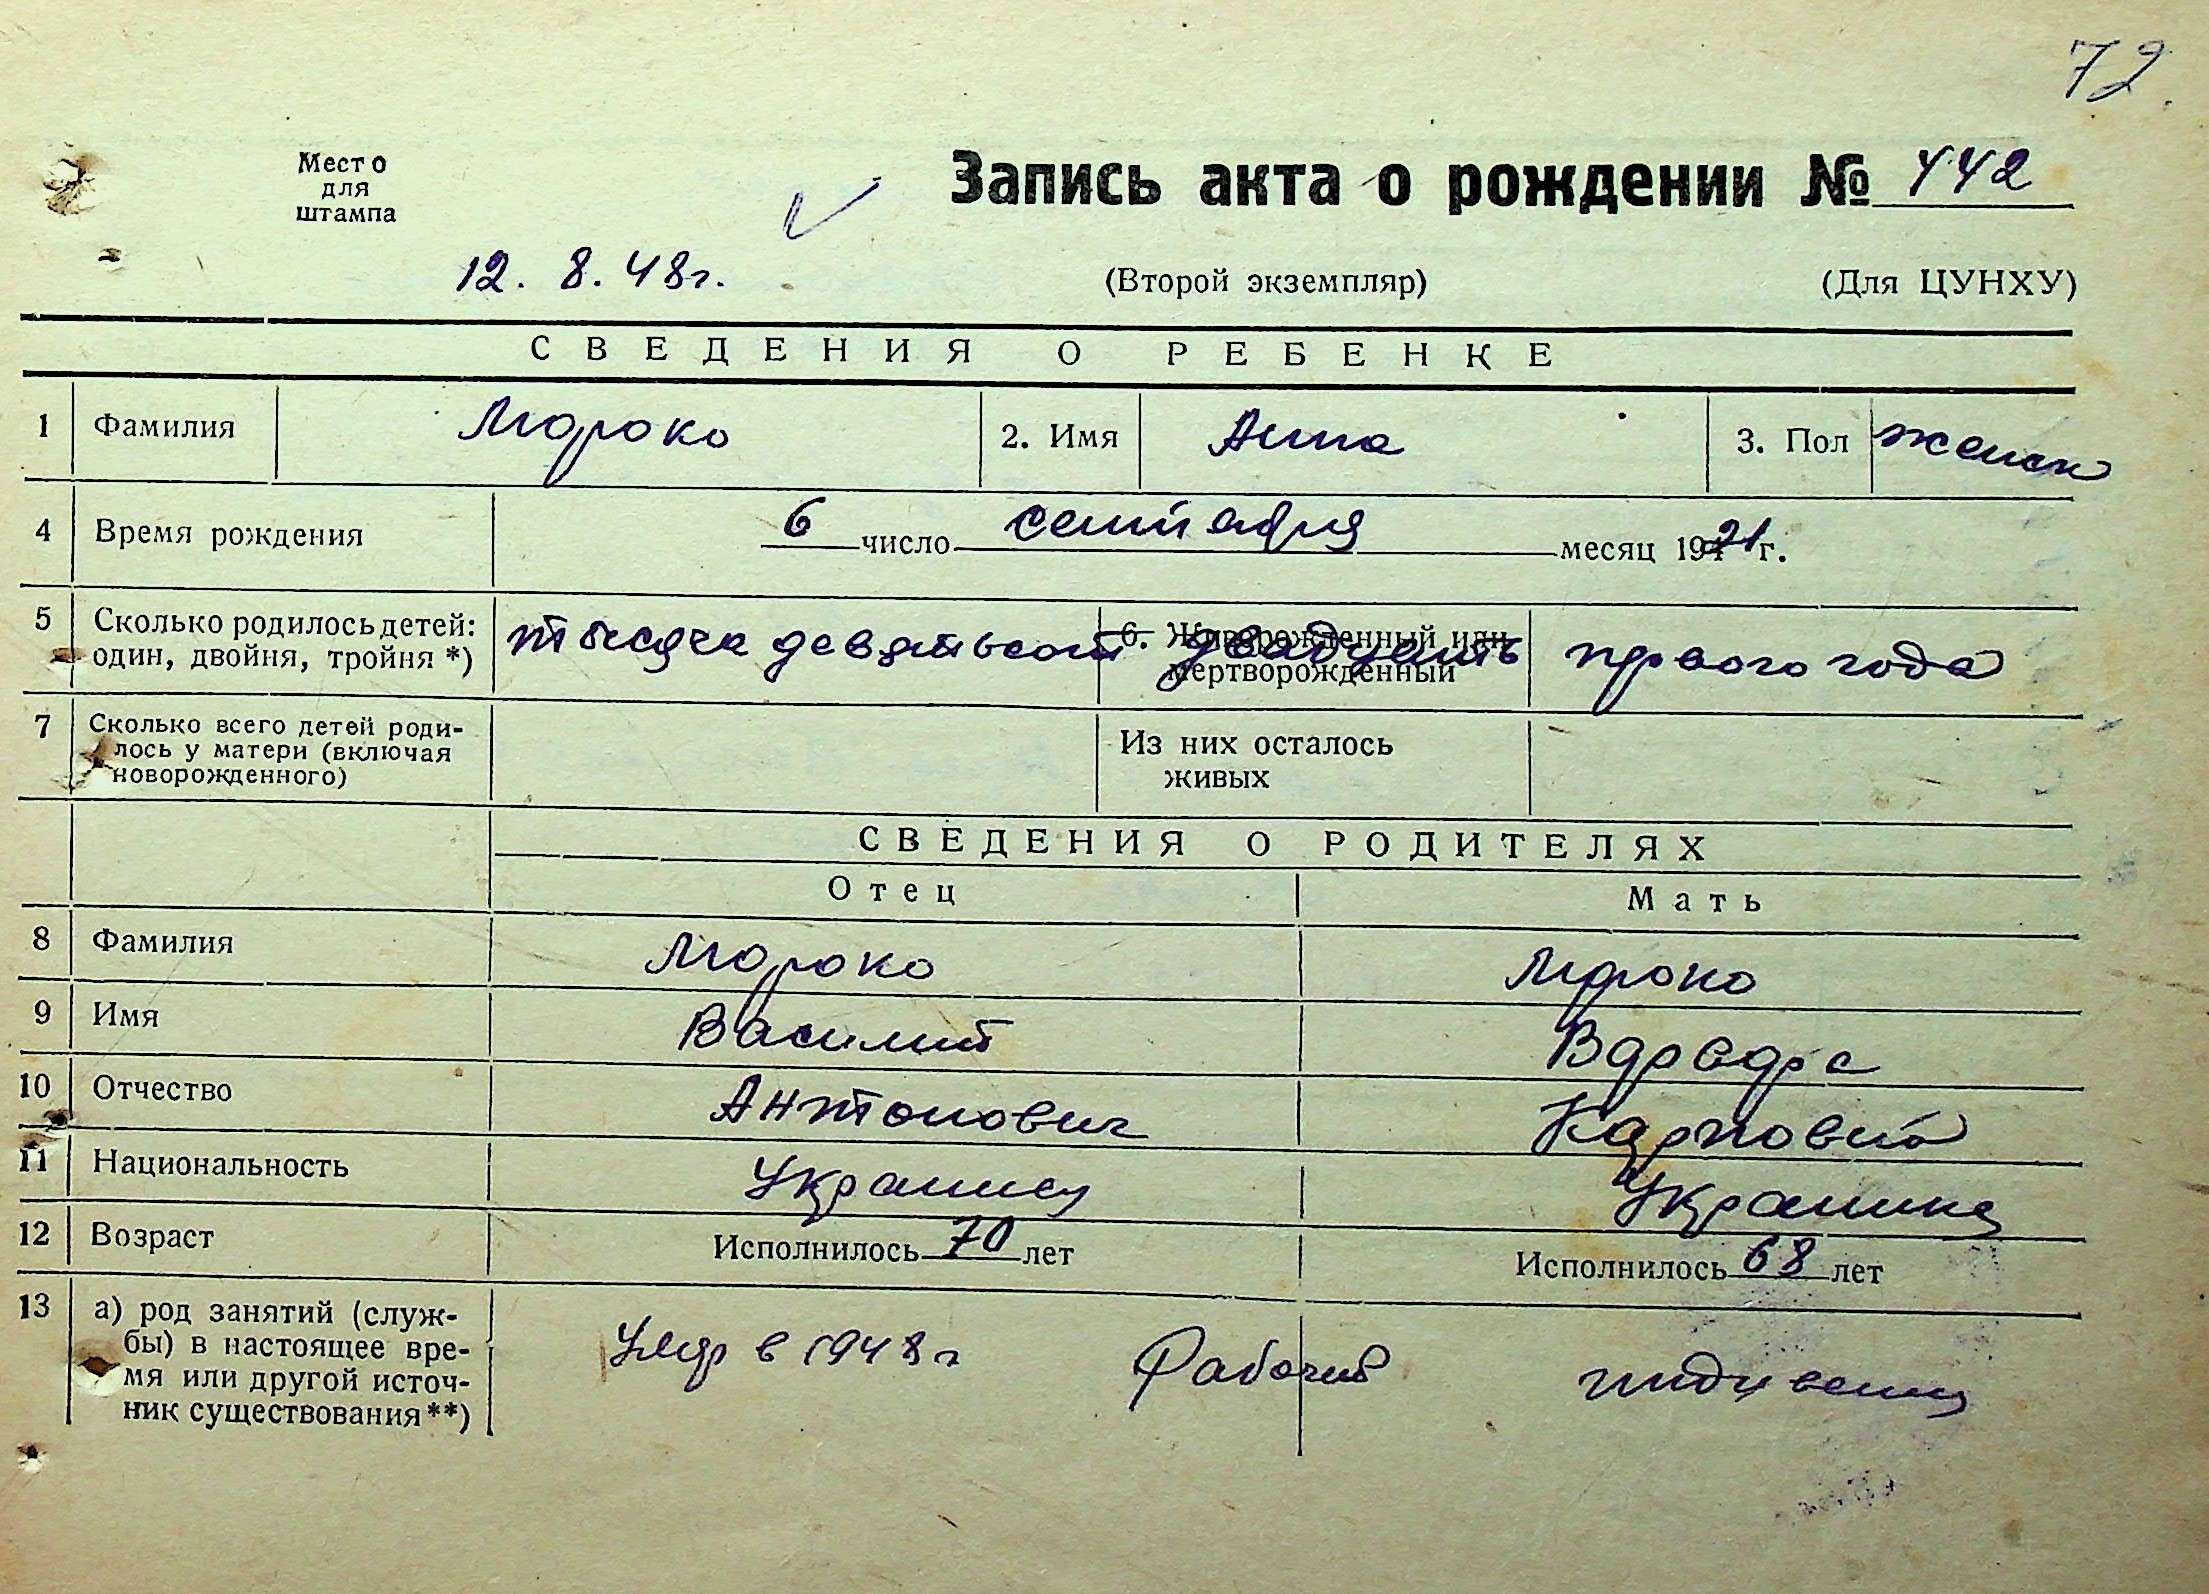 72.
Место
для
штампа
Запись акта о рождении № 442
12. 8. 48г.
(Второй экземпляр)
(Для ЦУНХУ)
СВЕДЕНИЯ О РЕБЕНКЕ
1 Фамилия Мороко 2. Имя Анна 3. Пол женск
4 Время рождения 6 число сентября месяц 1921 г.
5 Сколько родилось детей: один, двойня, тройня *) тысяча девятьсот 6. Живорожденный или мертворожденный двадцать первого года
7 Сколько всего детей роди-
лось у матери (включая
новорожденного)
Из них осталось
живых
СВЕДЕНИЯ О РОДИТЕЛЯХ
Отец Мать
8 Фамилия Мороко Мороко
9 Имя Василий Варвара
10 Отчество Антонович Карповна
11 Национальность Украинец Украинка
12 Возраст Исполнилось 70 лет Исполнилось 68 лет
13 а) род занятий (служ-
бы) в настоящее вре-
мя или другой источ-
ник существования**)
Умер в 1948 г Рабочий иждивениц